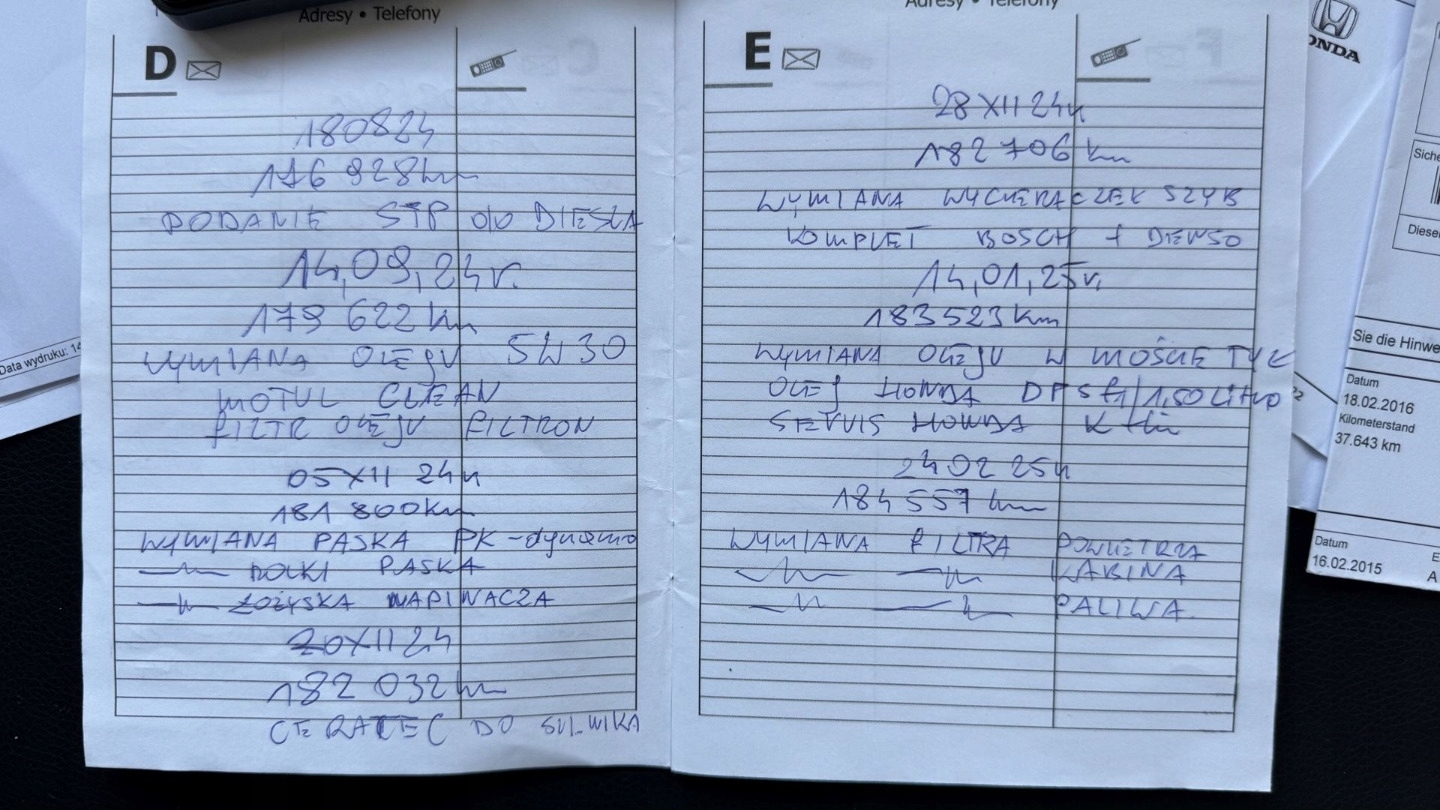 Adresy • Telefony
D
180824
176 828 km
DODANIE STP DO DIESLA
14,09,24r.
179 622 km
WYMIANA OLEJU 5W30
MOTUL CLEAN
FILTR OLEJU FILTRON
05 XII 24r
181 800 km
WYMIANA PASKA PK-dynamo
—〃— ROLKI PASKA
—〃— ŁOŻYSKA NAPINACZA
20 XII 24
182 032 km
CERATEC DO SILNIKA
Adresy • Telefony
E
28 XII 24r
182 706 km
WYMIANA WYCIERACZEK SZYB
KOMPLET BOSCH + DENSO
14,01,25r.
183523 km
WYMIANA OLEJU W MOŚCIE TYŁ
OLEJ HONDA DPSF/1,50 Litra
SERWIS HONDA
24 02 25r
184 557 km
WYMIANA FILTRA POWIETRZA
—〃— —〃— KABINA
—〃— —〃— PALIWA
Data wydruku: 14
HONDA
Siche
Diese
Sie die Hinwe
Datum
18.02.2016
Kilometerstand
37.643 km
Datum
16.02.2015
E
A